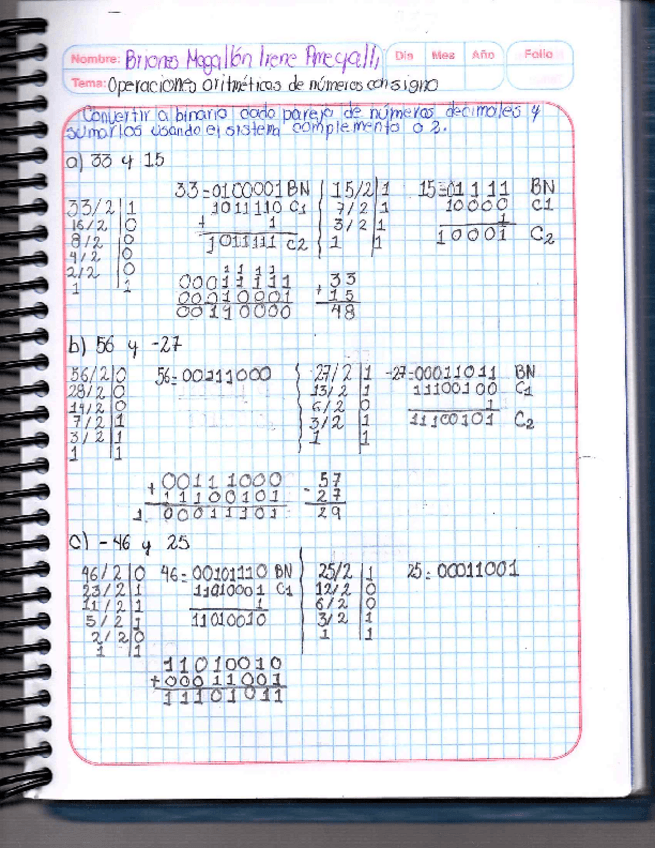 Nombre: Briones Magallón Irene Día Mes Año Folio
Tema: Operaciones aritméticas de números con signo
Convertir a binario cada pareja de números decimales y
sumarlos usando el sistema complemento a 2.
a) 33 y 15
33=0100001 BN
1011110 C1
+ 1
1011111 C2
33/2 1
16/2 0
8/2 0
4/2 0
2/2 0
1 1
15/2 1
7/2 1
3/2 1
1 1
15=01111 BN
10000 C1
1
10001 C2
1 1 1 1
00011111
00010001
00110000
33
+ 15
48
b) 56 y -27
56/2 0
28/2 0
14/2 0
7/2 1
3/2 1
1 1
56=00111000
27/2 1
13/2 1
6/2 0
3/2 1
1 1
-27=00011011 BN
11100100 C1
1
11100101 C2
+ 00111000
11100101
1 00011101
57
- 27
29
c) -46 y 25
46/2 0
23/2 1
11/2 1
5/2 1
2/2 0
1 1
46=00101110 BN
11010001 C1
1
11010010
25/2 1
12/2 0
6/2 0
3/2 1
1 1
25=00011001
11010010
+00011001
11101011